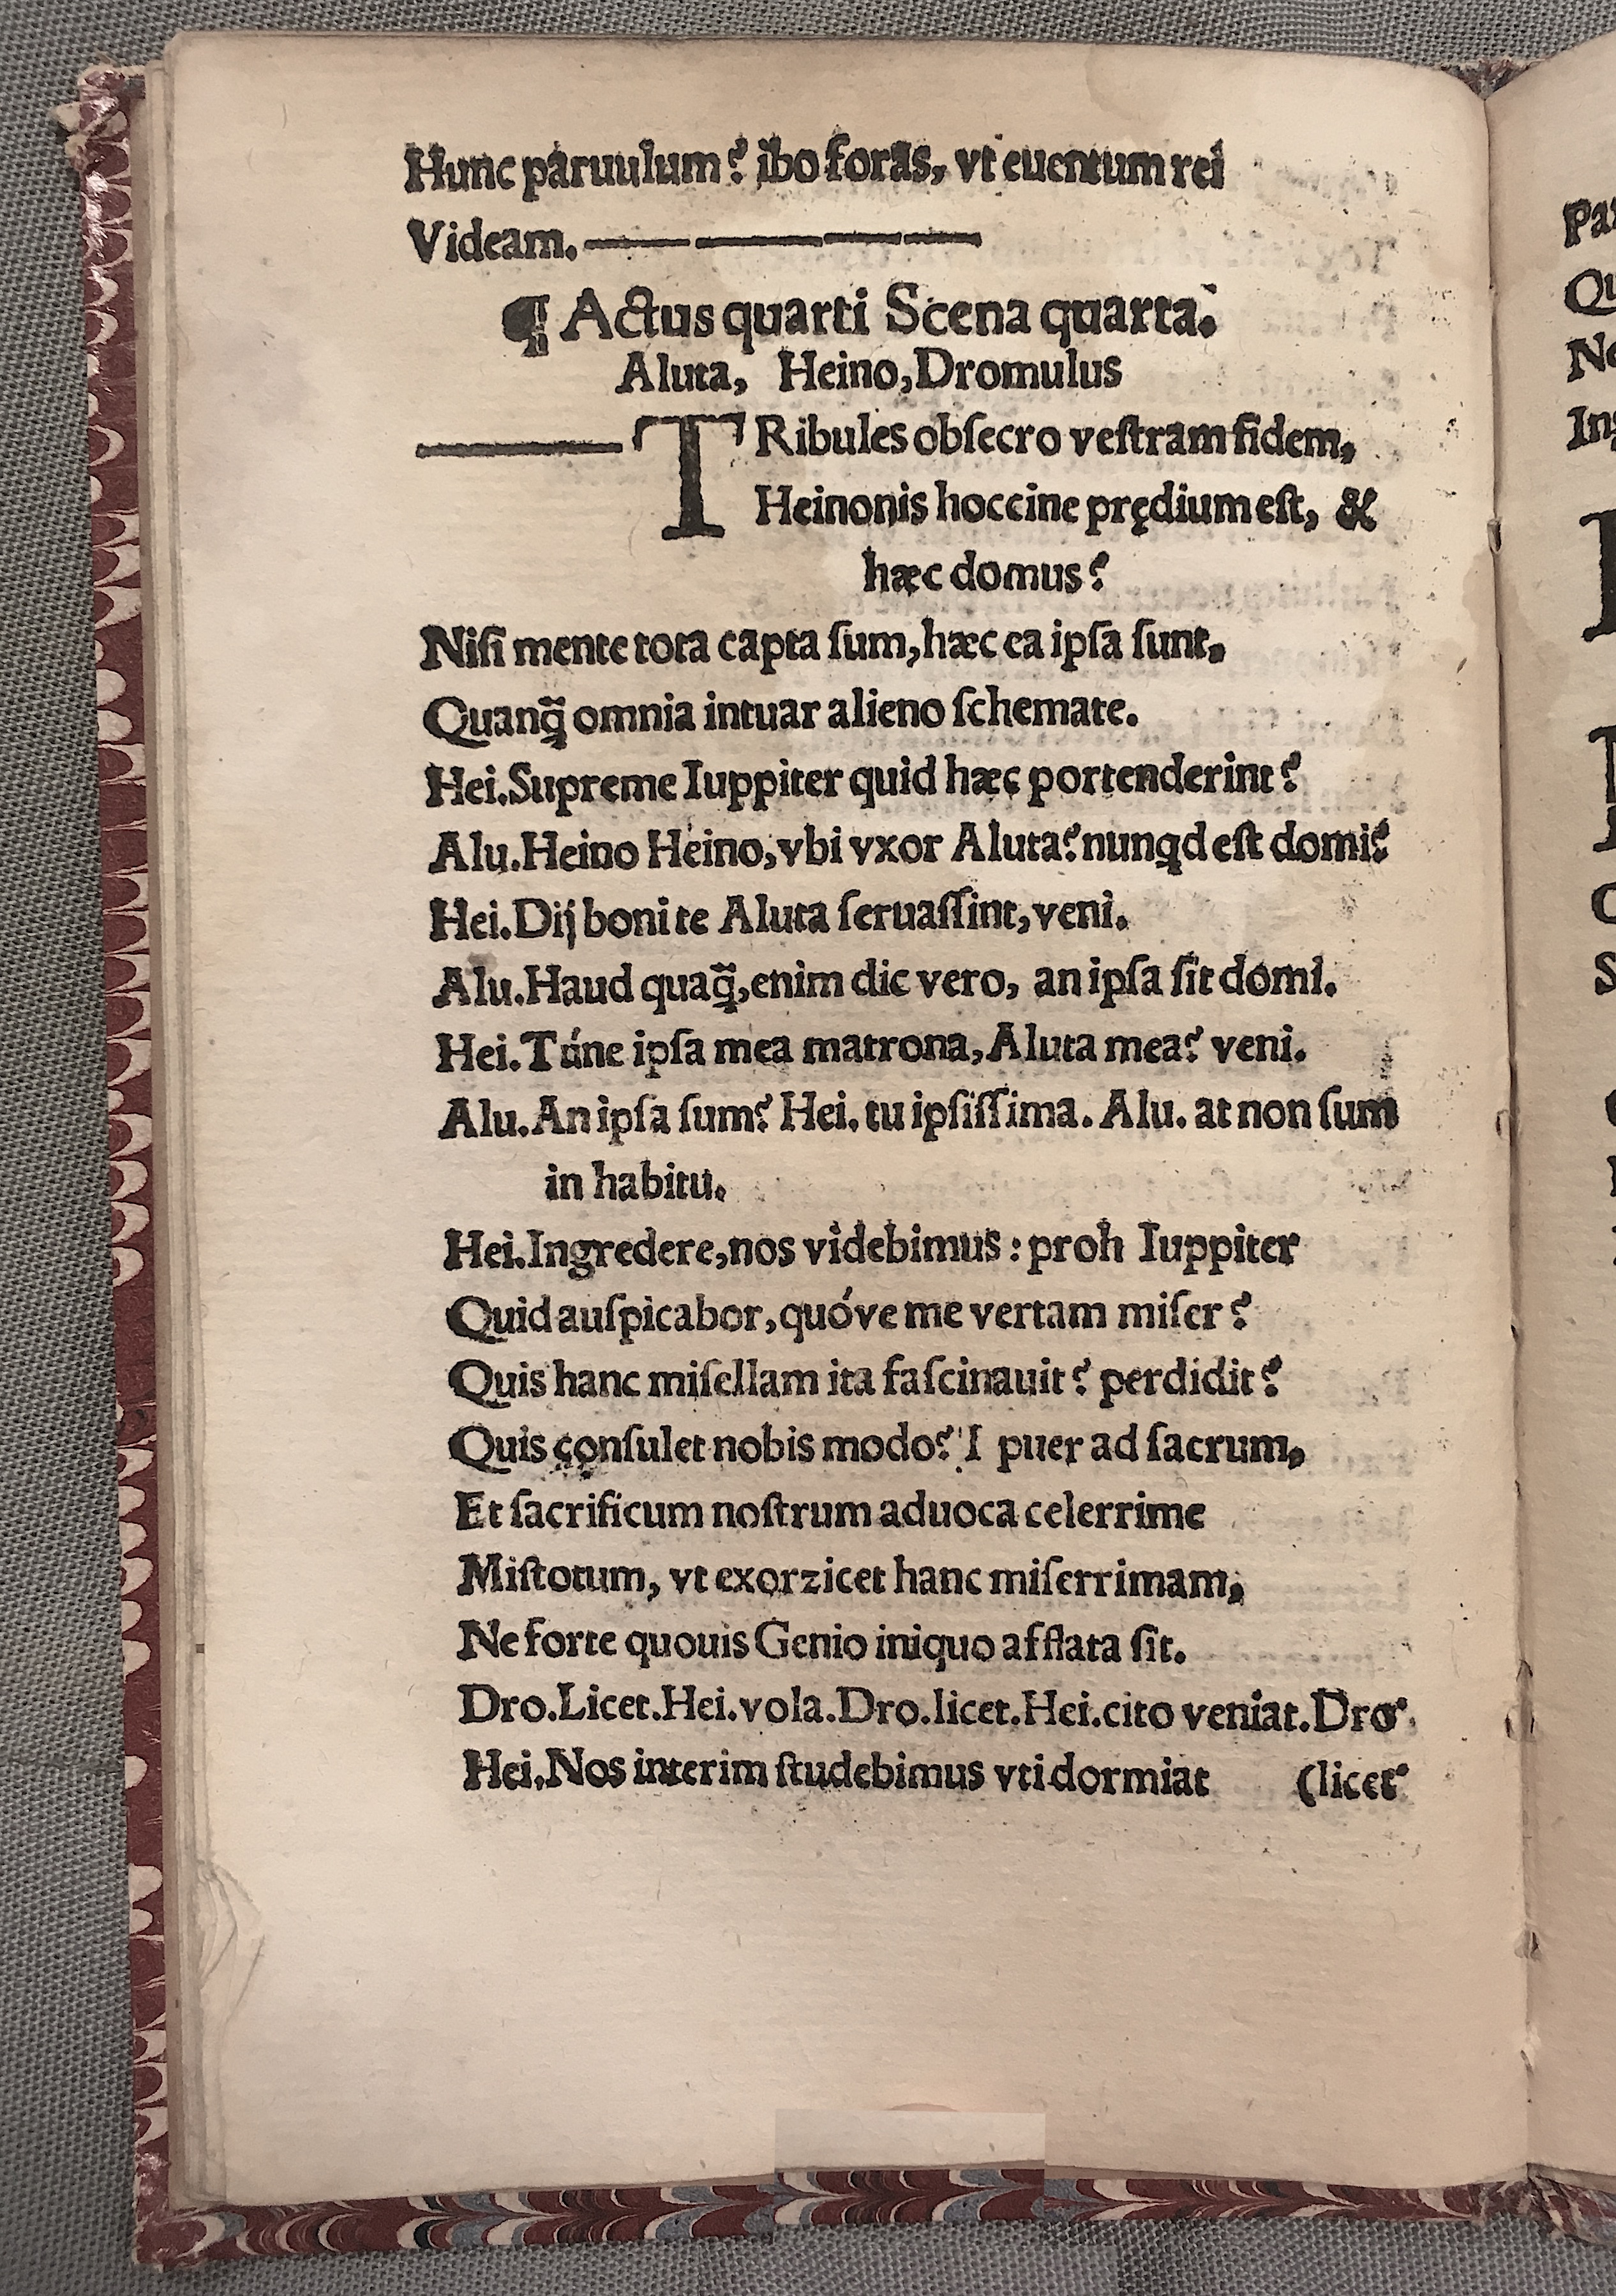 Hunc paruulum? ibo foras, vt euentum rei
Videam.
¶ Actus quarti Scena quarta.
Aluta, Heino, Dromulus
TRibules obſecro veſtram fidem,
Heinonis hoccine prędium eſt, &
hæc domus?
Niſi mente tota capta ſum, hæc ea ipſa ſunt.
Quanq̃ omnia intuar alieno ſchemate.
Hei. Supreme Iuppiter quid hæc portenderint?
Alu. Heino Heino, vbi vxor Aluta? nunqd eſt domi?
Hei. Dij boni te Aluta ſeruaſſint, veni.
Alu. Haud quaq̃, enim dic vero, an ipſa ſit domi.
Hei. Túne ipſa mea matrona, Aluta mea? veni.
Alu. An ipſa ſum? Hei. tu ipſiſſima. Alu. at non ſum
in habitu.
Hei. Ingredere, nos videbimus: proh Iuppiter
Quid auſpicabor, quóve me vertam miſer?
Quis hanc miſellam ita faſcinauit? perdidit?
Quis conſulet nobis modo? I puer ad ſacrum,
Et ſacrificum noſtrum aduoca celerrime
Miſtotum, vt exorzicet hanc miſerrimam,
Ne forte quouis Genio iniquo afflata ſit.
Dro. Licet. Hei. vola. Dro. licet. Hei. cito veniat. Dro.
Hei. Nos interim ſtudebimus vti dormiat (licet
Qu